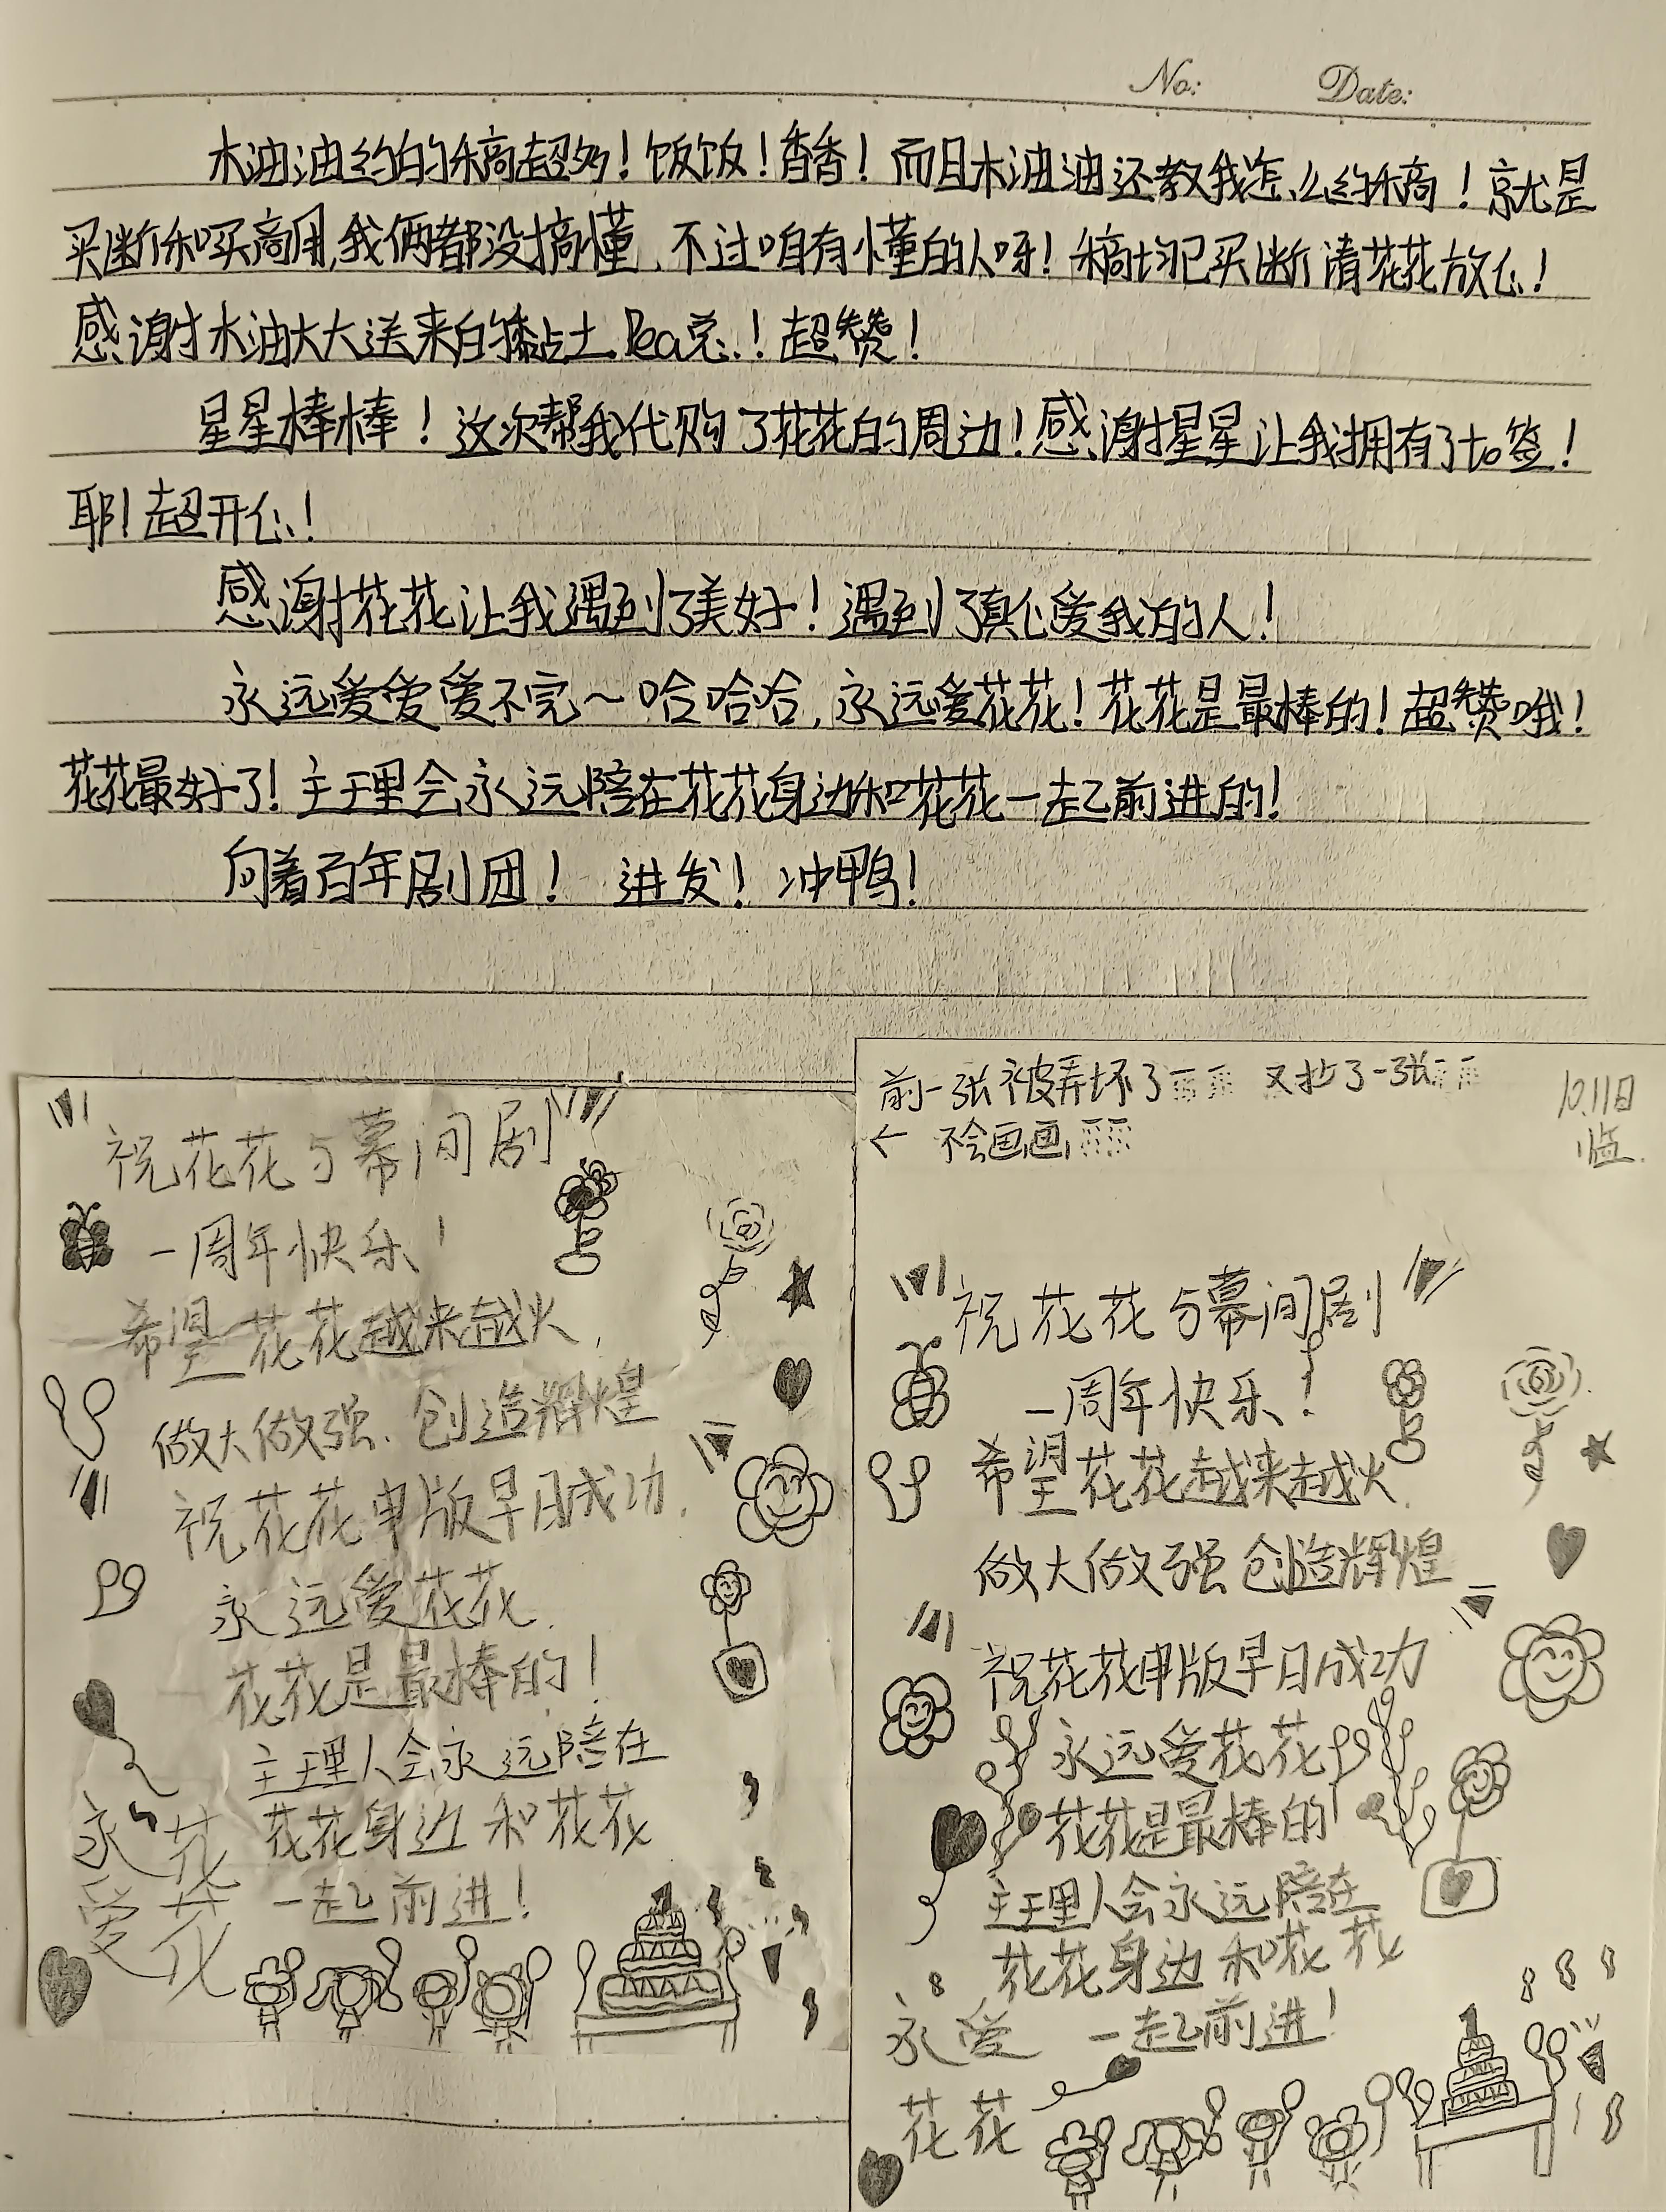 No: Date:
木油油约的稿超多！饭饭！香香！而且木油油还教我怎么约稿！就是
买断和买商用,我俩都没搞懂,不过咱有懂的人呀！稿均已买断请花花放心！
感谢木油大大送来的黏土Pea总！超赞！
星星棒棒！这次帮我代购了花花的周边！感谢星星让我拥有了to签！
耶！超开心！
感谢花花让我遇到了美好！遇到了真心爱我的人！
永远爱爱爱不完～哈哈哈,永远爱花花！花花是最棒的！超赞哦！
花花最好了！主理会永远陪在花花身边和花花一起前进的！
向着百年剧团！ 进发！冲鸭！
祝花花与幕间剧
一周年快乐！
希望花花越来越火,
做大做强、创造辉煌
祝花花申版早日成功.
永远爱花花.
花花是最棒的！
主理人会永远陪在
花花身边和花花
一起前进！
永花
爱花
前一张被弄坏了 又抄了一张
← 不会画画
10.11日
临.
祝花花与幕间剧
一周年快乐！
希望花花越来越火.
做大做强创造辉煌
祝花花申版早日成功
永远爱花花
花花是最棒的！
主理人会永远陪在
花花身边和花花
一起前进！
永爱
花花
1